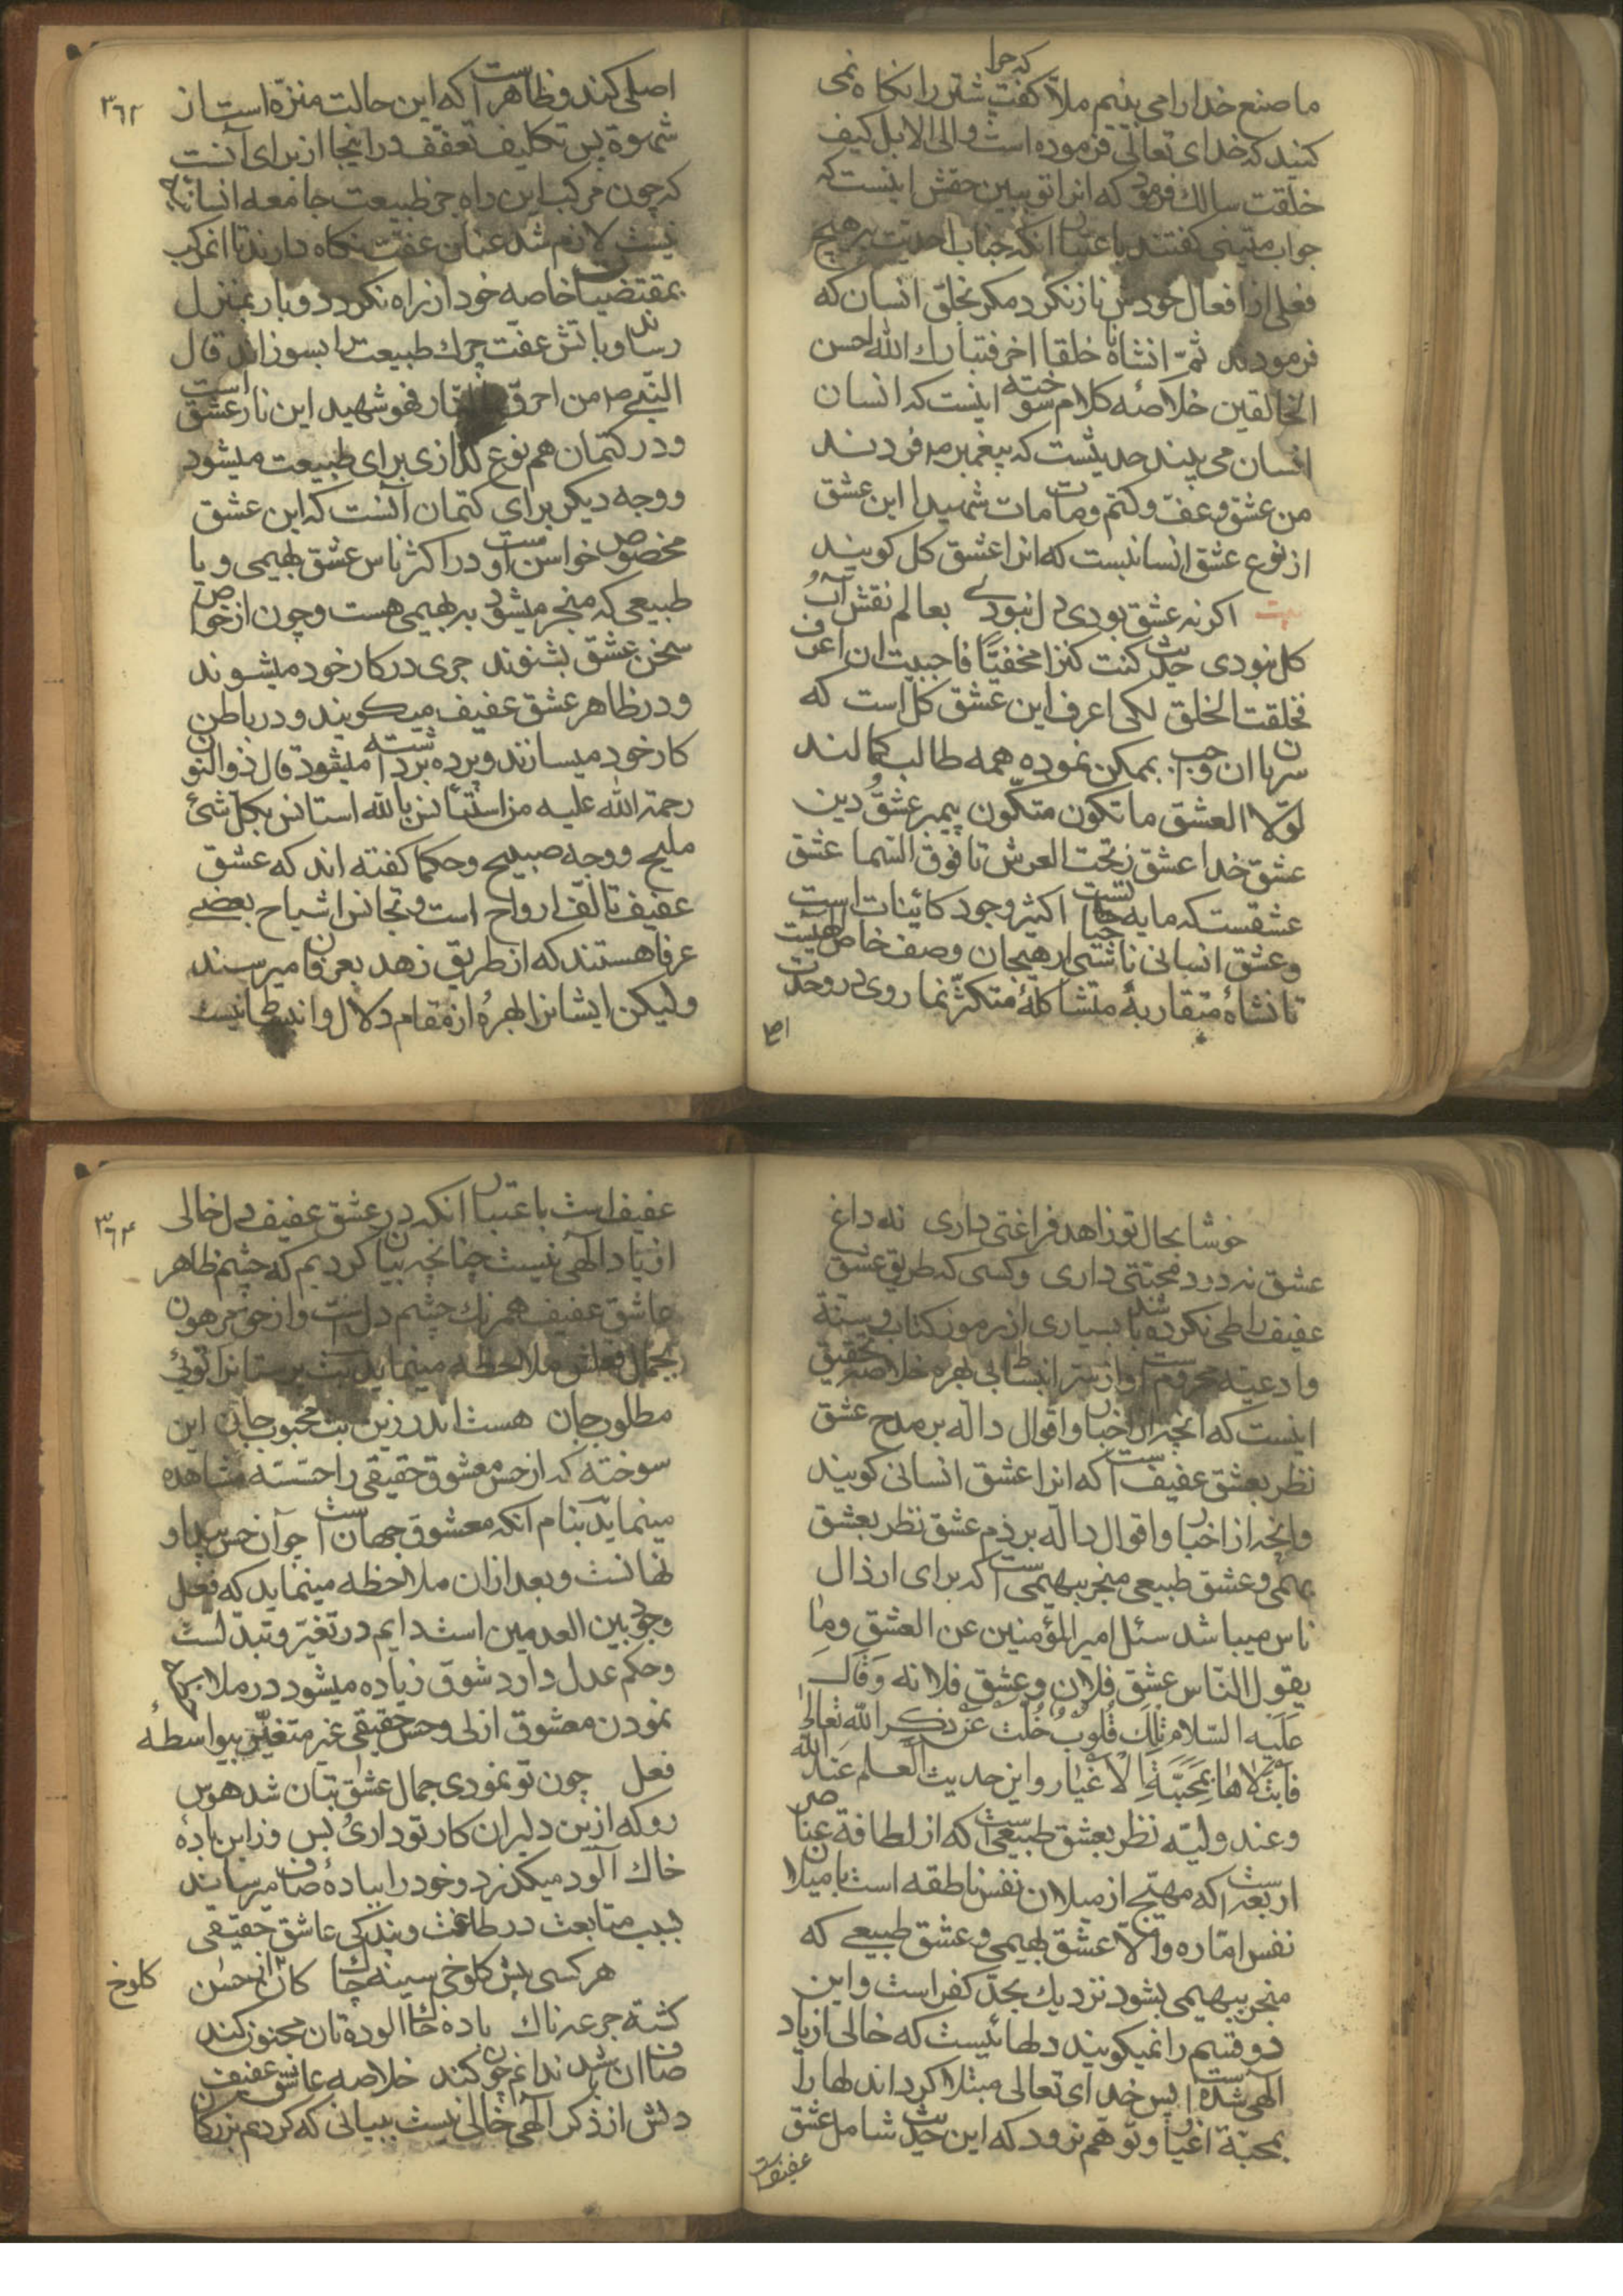 ما صنع خدا را می بینیم ملا کفت که چرا شتر را نکاه نمی
کنید که خدای تعالی فرموده است والی الابل کیف
خلقت سالک فرمود که انرا تو ببین حقش اینست که
جواب متینی کفتند باعتبار انکه جناب احدیت بر هیچ
فعلی از افعال خودش ناز نکرد مکر بخلق انسان که
فرمودند ثم انشاناه خلقا اخر فتبارک الله احسن
الخالقین خلاصه کلام سوخته اینست که انسان
انسان می بیند حدیثست که پیغمبر ص فرمودند
من عشق و عف و کتم و مات مات شهیدا این عشق
از نوع عشق انسانیست که انرا عشق کل کویند
بیت اکر نه عشق بودی دل نبودی بعالم نقش آب و
کل نبودی حدیث کنت کنزا مخفیا فاحببت ان اعرف
فخلقت الخلق لکی اعرف این عشق کل است که
سریان از واجب بممکن نموده همه طالب کمالند
لولا العشق ما تکون متکون پیمبر عشق و دین
عشق خدا عشق ز تحت العرش تا فوق السما عشق
عشقست که مایه حیاتست اکثر وجود کائینات است
وعشق انسانی ناشی از هیجان وصف خاص الهیست
تا نشاه متقاربهٔ متشاکلهٔ متکثر نما روی در وحدت
اصلی
۳۶۳
اصلی کند و ظاهر است که این حالت منزه است از
شهوة پس تکلیف تعفف در اینجا از برای آنست
که چون مرکب این راه جز طبیعت جامعه انسانیه
نیست لازم شد عنان عفت نکاه دارند تا انمرکب
بمقتضیات خاصه خود از راه نکردد و بار بمنزل
رساند و باتش عفت چرک طبیعت را بسوزاند قال
النبی ص من احرق بالنار فهو شهید این نار عشق است
و در کتمان هم نوع کدازی برای طبیعت میشود
و وجه دیکر برای کتمان آنست که این عشق
مخصوص خواص است و در اکثر ناس عشق بهیمی و یا
طبیعی که منجر میشود به بهیمی هست و چون از خواص
سخن عشق بشنوند جری در کار خود میشوند
و در ظاهر عشق عفیف میکویند و در باطن
کار خود میسازند و پرده برداشته میشود قال ذوالنون
رحمة الله علیه من استأنس بالله استانس بکل شئ
ملیح و وجه صبیح و حکما کفته اند که عشق
عفیف تالف ارواح است و تجانس اشباح بعضی
عرفا هستند که از طریق زهد بعرفان میرسند
ولیکن ایشانرا بهرهٔ از مقام دلال و انبساط نیست
خوشا بحال تو زاهد فراغتی داری نه داغ
عشق نه درد محبتی داری و کسی که طریق عشق
عفیف را طی نکرده باشد بسیاری از رموز کتاب و سنة
و ادعیه محروم است و از سر انبساط بی بهره خلاصه تحقیق
اینست که انچه از اخبار و اقوال داله بر مدح عشق
نظر بعشق عفیف است که انرا عشق انسانی کویند
وانچه از اخبار و اقوال داله بر ذم عشق نظر بعشق
بهیمی و عشق طبیعی منجر ببهیمی است که برای ارذال
ناس میباشد سئل امیر المؤمنین عن العشق وما
یقول الناس عشق فلان وعشق فلانه وقال
علیه السلام تلک قلوب خلت عن ذکر الله تعالی
فابتلاها بمحبة الاغیار و این حدیث العلم عند الله
وعند ولیه نظر بعشق طبیعی است که از لطافة عناصر
اربعه است که مهیج از میلان نفس ناطقه است با میلان
نفس اماره والا عشق بهیمی و عشق طبیعی که
منجر ببهیمی بشود نزدیک بحد کفر است و این
دو قسم را نمیکویند دلهائیست که خالی از یاد
الهی شده است پس خدای تعالی مبتلا کرداند لها را
بمحبة اغیار و توهم نرود که این حدیث شامل عشق
عفیف است
۳۶۴
عفیف است باعتبار انکه در عشق عفیف دل خالی
از یاد الهی نیست چنانچه بیان کردیم که چشم ظاهر
عاشق عفیف همرنک چشم دل است و از خود مرهون
بجمال فعلش ملاحظه مینماید بت پرستانرا توئی
مطلوب جان هست اندر زین بت محبوب جان این
سوخته که از حس معشوق حقیقی را حسته مشاهده
مینماید بنام آنکه معشوق جهان است چو آن حسن پیدا و
نهانست و بعد از ان ملاحظه مینماید که فعل
وجود بین العدمین است دایم در تغیر و تبدلست
وحکم عدل دارد شوق زیاده میشود در ملاحظه
نمودن معشوق ازلی و حسن حقیقی غیر متغیر بیواسطهٔ
فعل چون تو نمودی جمال عشق بتان شد هوس
رو که ازین دلبران کار تو داری بس وز این بادهٔ
خاک آلود میکذرد و خود را ببادهٔ صاف میرساند
بسبب متابعت در طاعت و بندکی عاشق حقیقی
هر کسی پیش کلوخی سینه چاک کان از حسن
کلوخ
کشته جرعه ناک بادهٔ خاک آلوده تان مجنون کند
صاف ان باشد ندانم چون کند خلاصه عاشق عفیف
دلش از ذکر الهی خالی نیست ببیانی که کردم بزرکان